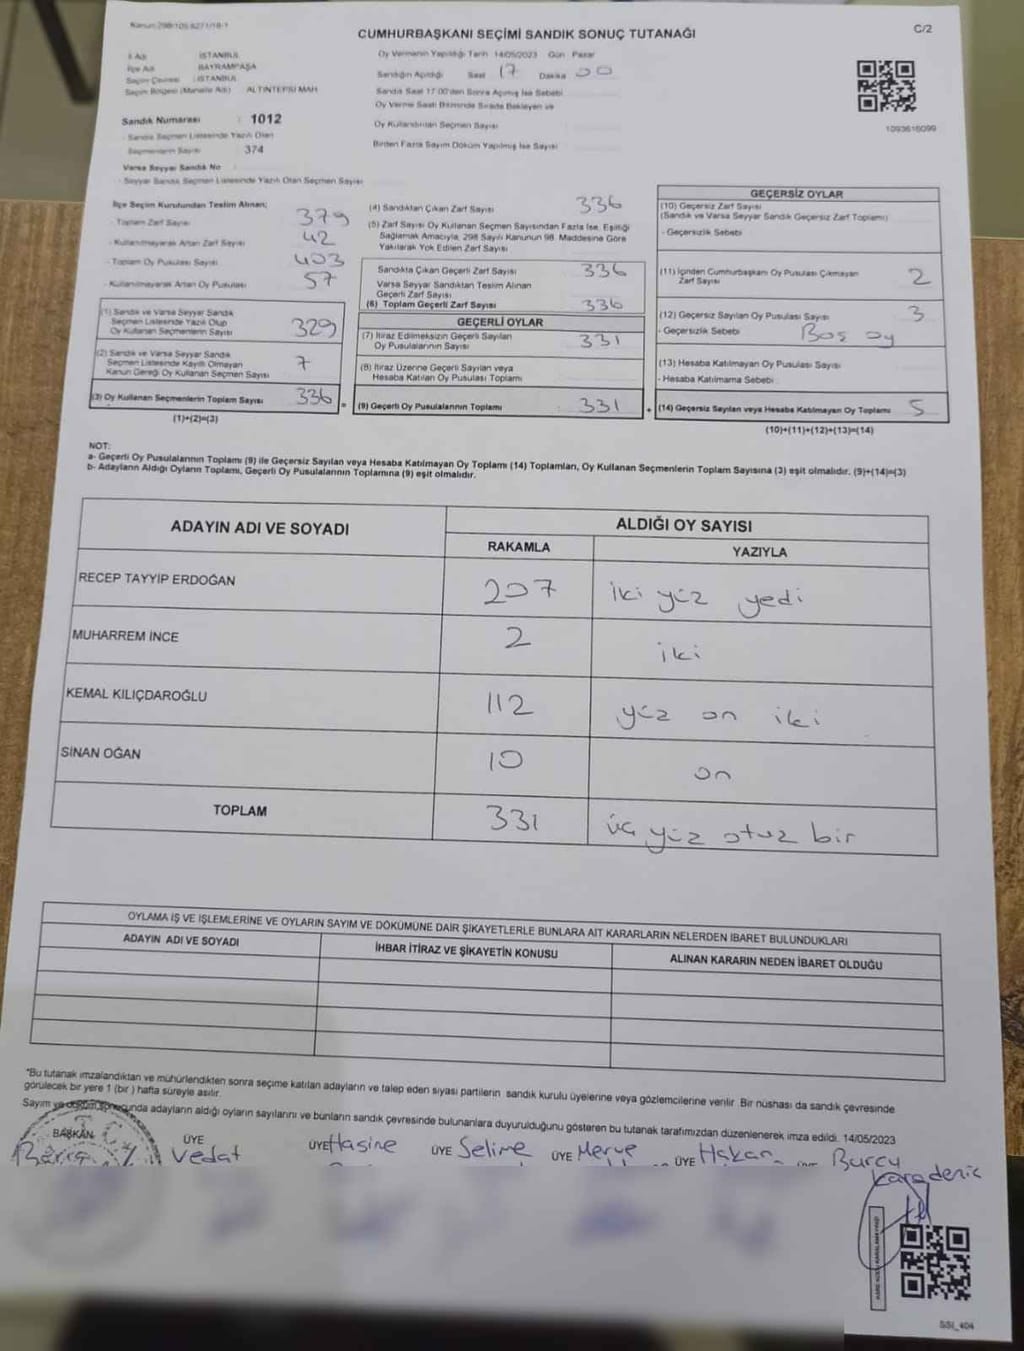 Kanun:298/105 6271/18-1
CUMHURBAŞKANI SEÇİMİ SANDIK SONUÇ TUTANAĞI
C/2
İl Adı İSTANBUL
İlçe Adı BAYRAMPAŞA
Seçim Çevresi : İSTANBUL
Seçim Bölgesi (Mahalle Adı) ALTINTEPSİ MAH
Sandık Numarası : 1012
- Sandık Seçmen Listesinde Yazılı Olan
Seçmenlerin Sayısı 374
Varsa Seyyar Sandık No
- Seyyar Sandık Seçmen Listesinde Yazılı Olan Seçmen Sayısı
Oy Vermenin Yapıldığı Tarih 14/05/2023 Gün Pazar
Sandığın Açıldığı Saat 17 Dakika 00
Sandık Saat 17.00'den Sonra Açılmış İse Sebebi
Oy Verme Saati Bitiminde Sırada Bekleyen ve
Oy Kullandırılan Seçmen Sayısı
Birden Fazla Sayım Döküm Yapılmış İse Sayısı
1093616099
İlçe Seçim Kurulundan Teslim Alınan;
- Toplam Zarf Sayısı 379
- Kullanılmayarak Artan Zarf Sayısı 42
- Toplam Oy Pusulası Sayısı 403
- Kullanılmayarak Artan Oy Pusulası 57
(1) Sandık ve Varsa Seyyar Sandık
Seçmen Listesinde Yazılı Olup
Oy Kullanan Seçmenlerin Sayısı 329
(2) Sandık ve Varsa Seyyar Sandık
Seçmen Listesinde Kayıtlı Olmayan
Kanun Gereği Oy Kullanan Seçmen Sayısı 7
(3) Oy Kullanan Seçmenlerin Toplam Sayısı 336
(1)+(2)=(3)
=
(4) Sandıktan Çıkan Zarf Sayısı 336
(5) Zarf Sayısı Oy Kullanan Seçmen Sayısından Fazla İse, Eşitliği
Sağlamak Amacıyla, 298 Sayılı Kanunun 98. Maddesine Göre
Yakılarak Yok Edilen Zarf Sayısı
Sandıkta Çıkan Geçerli Zarf Sayısı 336
Varsa Seyyar Sandıktan Teslim Alınan
Geçerli Zarf Sayısı
(6) Toplam Geçerli Zarf Sayısı 336
GEÇERLİ OYLAR
(7) İtiraz Edilmeksizin Geçerli Sayılan
Oy Pusulalarının Sayısı 331
(8) İtiraz Üzerine Geçerli Sayılan veya
Hesaba Katılan Oy Pusulası Toplamı
(9) Geçerli Oy Pusulalarının Toplamı 331
+
GEÇERSİZ OYLAR
(10) Geçersiz Zarf Sayısı
(Sandık ve Varsa Seyyar Sandık Geçersiz Zarf Toplamı)
- Geçersizlik Sebebi
(11) İçinden Cumhurbaşkanı Oy Pusulası Çıkmayan
Zarf Sayısı 2
(12) Geçersiz Sayılan Oy Pusulası Sayısı 3
- Geçersizlik Sebebi Boş oy
(13) Hesaba Katılmayan Oy Pusulası Sayısı
- Hesaba Katılmama Sebebi
(14) Geçersiz Sayılan veya Hesaba Katılmayan Oy Toplamı 5
(10)+(11)+(12)+(13)=(14)
NOT:
a- Geçerli Oy Pusulalarının Toplamı (9) ile Geçersiz Sayılan veya Hesaba Katılmayan Oy Toplamı (14) Toplamları, Oy Kullanan Seçmenlerin Toplam Sayısına (3) eşit olmalıdır. (9)+(14)=(3)
b- Adayların Aldığı Oyların Toplamı, Geçerli Oy Pusulalarının Toplamına (9) eşit olmalıdır.
ADAYIN ADI VE SOYADI
ALDIĞI OY SAYISI
RAKAMLA YAZIYLA
RECEP TAYYİP ERDOĞAN 207 iki yüz yedi
MUHARREM İNCE 2 iki
KEMAL KILIÇDAROĞLU 112 yüz on iki
SİNAN OĞAN 10 on
TOPLAM 331 üç yüz otuz bir
OYLAMA İŞ VE İŞLEMLERİNE VE OYLARIN SAYIM VE DÖKÜMÜNE DAİR ŞİKAYETLERLE BUNLARA AİT KARARLARIN NELERDEN İBARET BULUNDUKLARI
ADAYIN ADI VE SOYADI İHBAR İTİRAZ VE ŞİKAYETİN KONUSU ALINAN KARARIN NEDEN İBARET OLDUĞU
*Bu tutanak imzalandıktan ve mühürlendikten sonra seçime katılan adayların ve talep eden siyasi partilerin sandık kurulu üyelerine veya gözlemcilerine verilir. Bir nüshası da sandık çevresinde
görülecek bir yere 1 (bir) hafta süreyle asılır.
Sayım ve döküm sonucunda adayların aldığı oyların sayılarını ve bunların sandık çevresinde bulunanlara duyurulduğunu gösteren bu tutanak tarafımızdan düzenlenerek imza edildi. 14/05/2023
BAŞKAN ÜYE ÜYE Hasine ÜYE Selime ÜYE Merve ÜYE Hakan Burcu
Vedat
Karadeniz
SSI_404